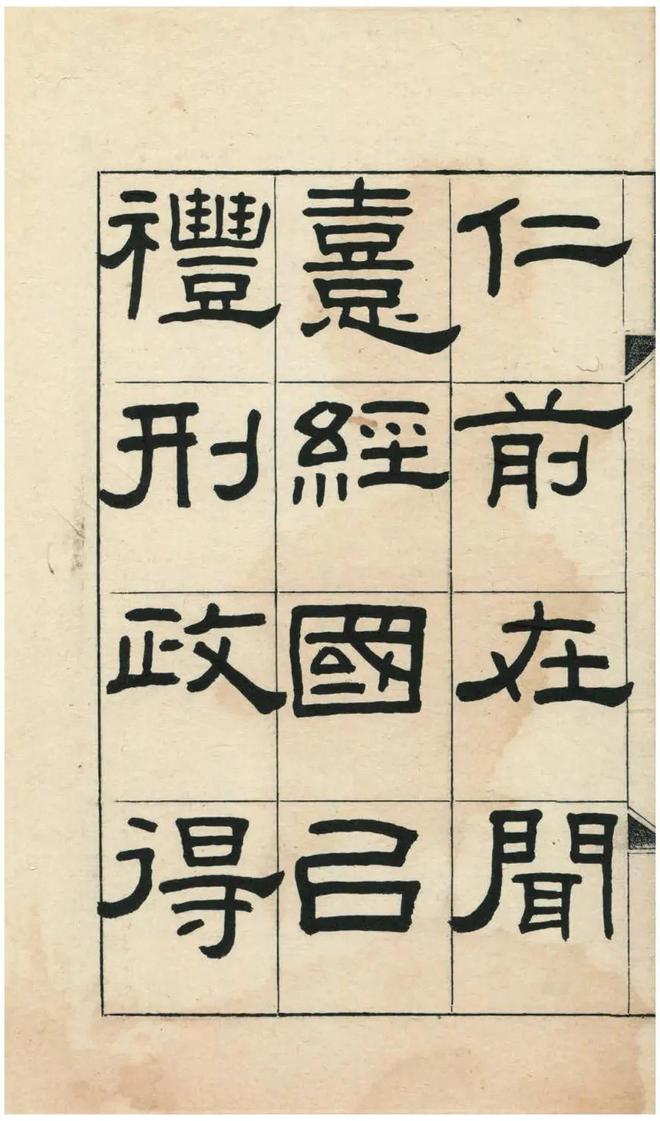 仁前在聞
憙經國㠯
禮刑政得